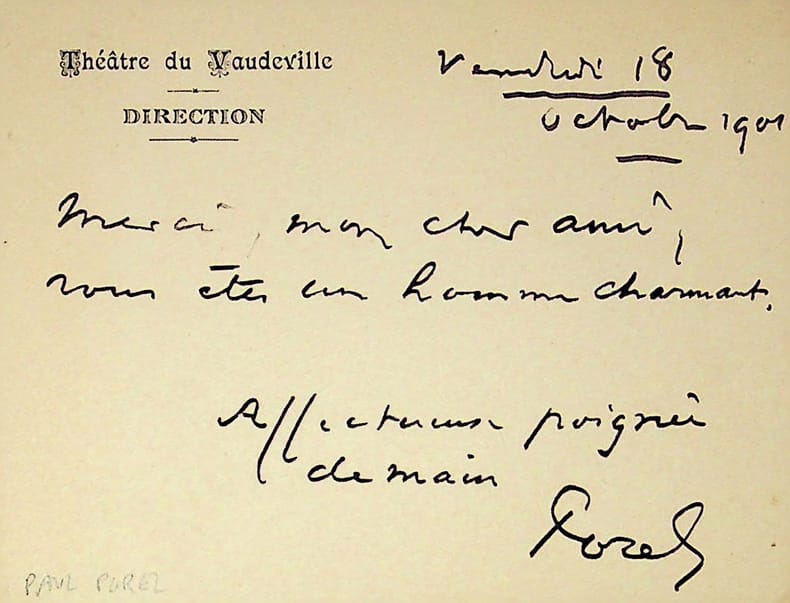 Théâtre du Vaudeville
DIRECTION
Vendredi 18
octobre 1901
Merci, mon cher ami,
vous êtes un homme charmant.
Affectueuse poignée
de main
Porel
PAUL POREL